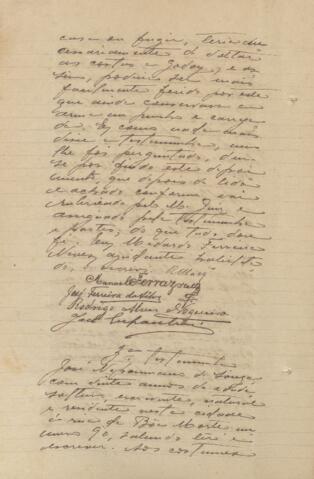 casa em fugir, teria ne
cessariamente de voltar
as costas a Godoy, e as
sim, poderia ser mais
facilmente ferido por este
que ainda conservava a
arma em punho e carrega
da. E, como nada mais
disse a testemunha, nem
lhe foi perguntado, deu-
se por findo este depoi
mento, que depois de lido
e achado conforme, vai
rubricado pelo M. Juiz e
assignado pela testemunha
e partes; do que tudo dou
fé. Eu, Medardo Ferreira
Neves, ajudante habilita
do, escrevi.
Manoel Ferraz
José Ferreira da Silva
Rodrigo Alves Nogueira
José
3ª testemunha
José Nepomuceno de Souza,
com vinte annos de edade,
solteiro, natural
e residente nesta cidade
á rua da Bôa Morte nu
mero 90, sabendo ler e
escrever. Aos costumes